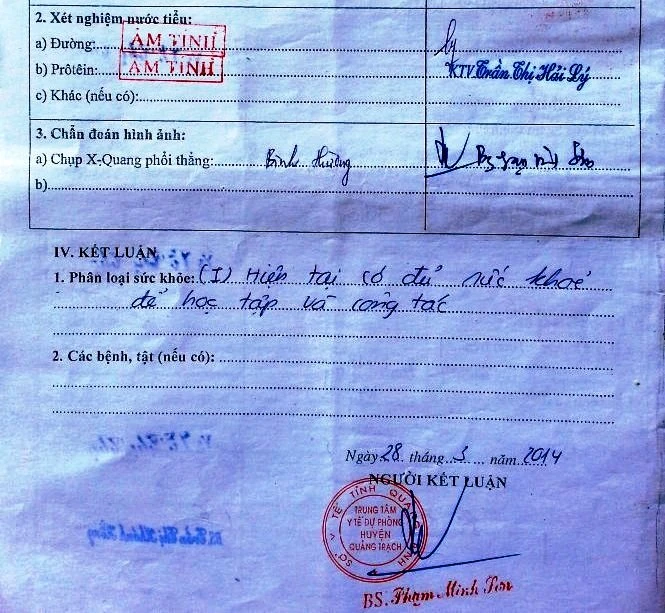 2. Xét nghiệm nước tiểu:
a) Đường: ÂM TÍNH
b) Prôtêin: ÂM TÍNH
KTV Trần Thị Hải Lý
c) Khác (nếu có):
3. Chẩn đoán hình ảnh:
a) Chụp X-Quang phổi thẳng: Bình thường
b)
IV. KẾT LUẬN
1. Phân loại sức khỏe: (I) Hiện tại có đủ sức khoẻ
để học tập và công tác
2. Các bệnh, tật (nếu có):
Ngày 28 tháng 3 năm 2014
NGƯỜI KẾT LUẬN
SỞ Y TẾ TỈNH QUẢNG BÌNH
TRUNG TÂM
Y TẾ DỰ PHÒNG
HUYỆN
QUẢNG TRẠCH
BS. Phạm Minh